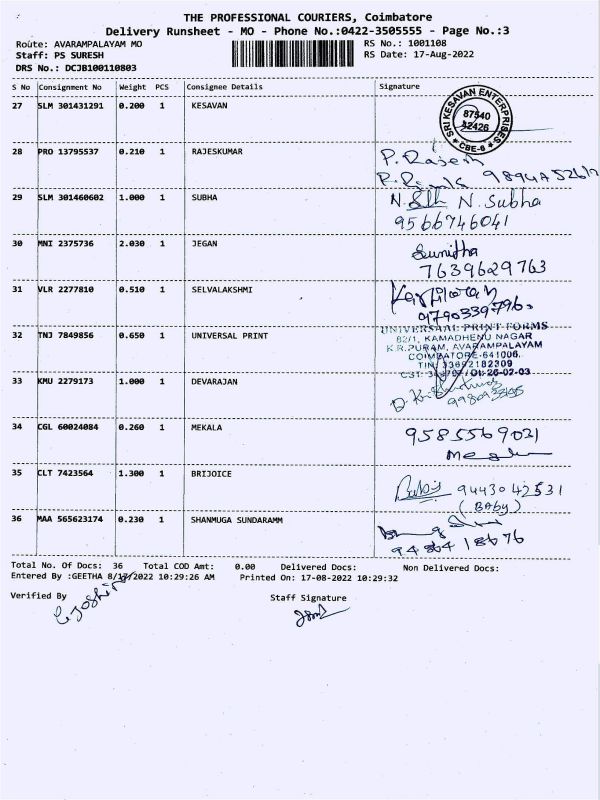 THE PROFESSIONAL COURIERS, Coimbatore
Delivery Runsheet - MO - Phone No.:0422-3505555 - Page No.:3
Route: AVARAMPALAYAM MO RS No.: 1001108
Staff: PS SURESH RS Date: 17-Aug-2022
DRS No.: DCJB100110803
S No Consignment No Weight PCS Consignee Details Signature
27 SLM 301431291 0.200 1 KESAVAN
SRI KESAVAN ENTERPRISES
87540
42426
CBE-6
28 PRO 13795537 0.210 1 RAJESKUMAR
P. Rajesh
29 SLM 301460602 1.000 1 SUBHA N. Subha
9566746041
30 MNI 2375736 2.030 1 JEGAN Sunitha
7639629763
31 VLR 2277810 0.510 1 SELVALAKSHMI
9790339796
32 TNJ 7849856 0.650 1 UNIVERSAL PRINT UNIVERSAAL PRINT FORMS
82/1, KAMADHENU NAGAR
K.R.PURAM, AVARAMPALAYAM
COIMBATORE-641006.
TIN: 33692182309
26-02-03
33 KMU 2279173 1.000 1 DEVARAJAN
34 CGL 60024084 0.260 1 MEKALA 9585569021
35 CLT 7423564 1.300 1 BRIJOICE
9443042531
(BABy)
36 MAA 565623174 0.230 1 SHANMUGA SUNDARAMM
9486418676
Total No. Of Docs: 36 Total COD Amt: 0.00 Delivered Docs: Non Delivered Docs:
Entered By :GEETHA 8/17/2022 10:29:26 AM Printed On: 17-08-2022 10:29:32
Verified By Staff Signature